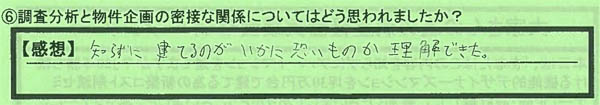 ⑥調査分析と物件企画の密接な関係についてはどう思われましたか？
【感想】 知らずに 建てるのが いかに 恐いものか 理解できた。